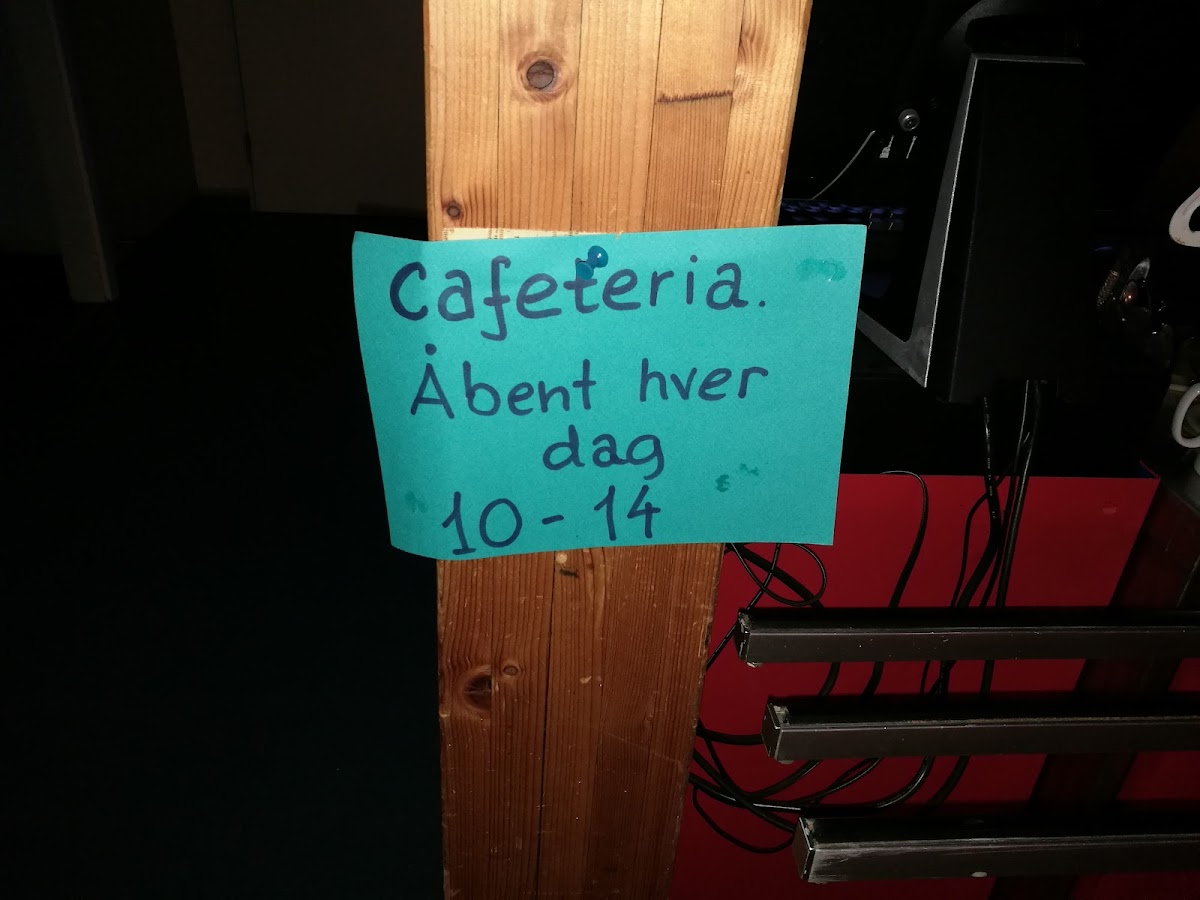 Cafeteria.
Åbent hver
dag
10-14